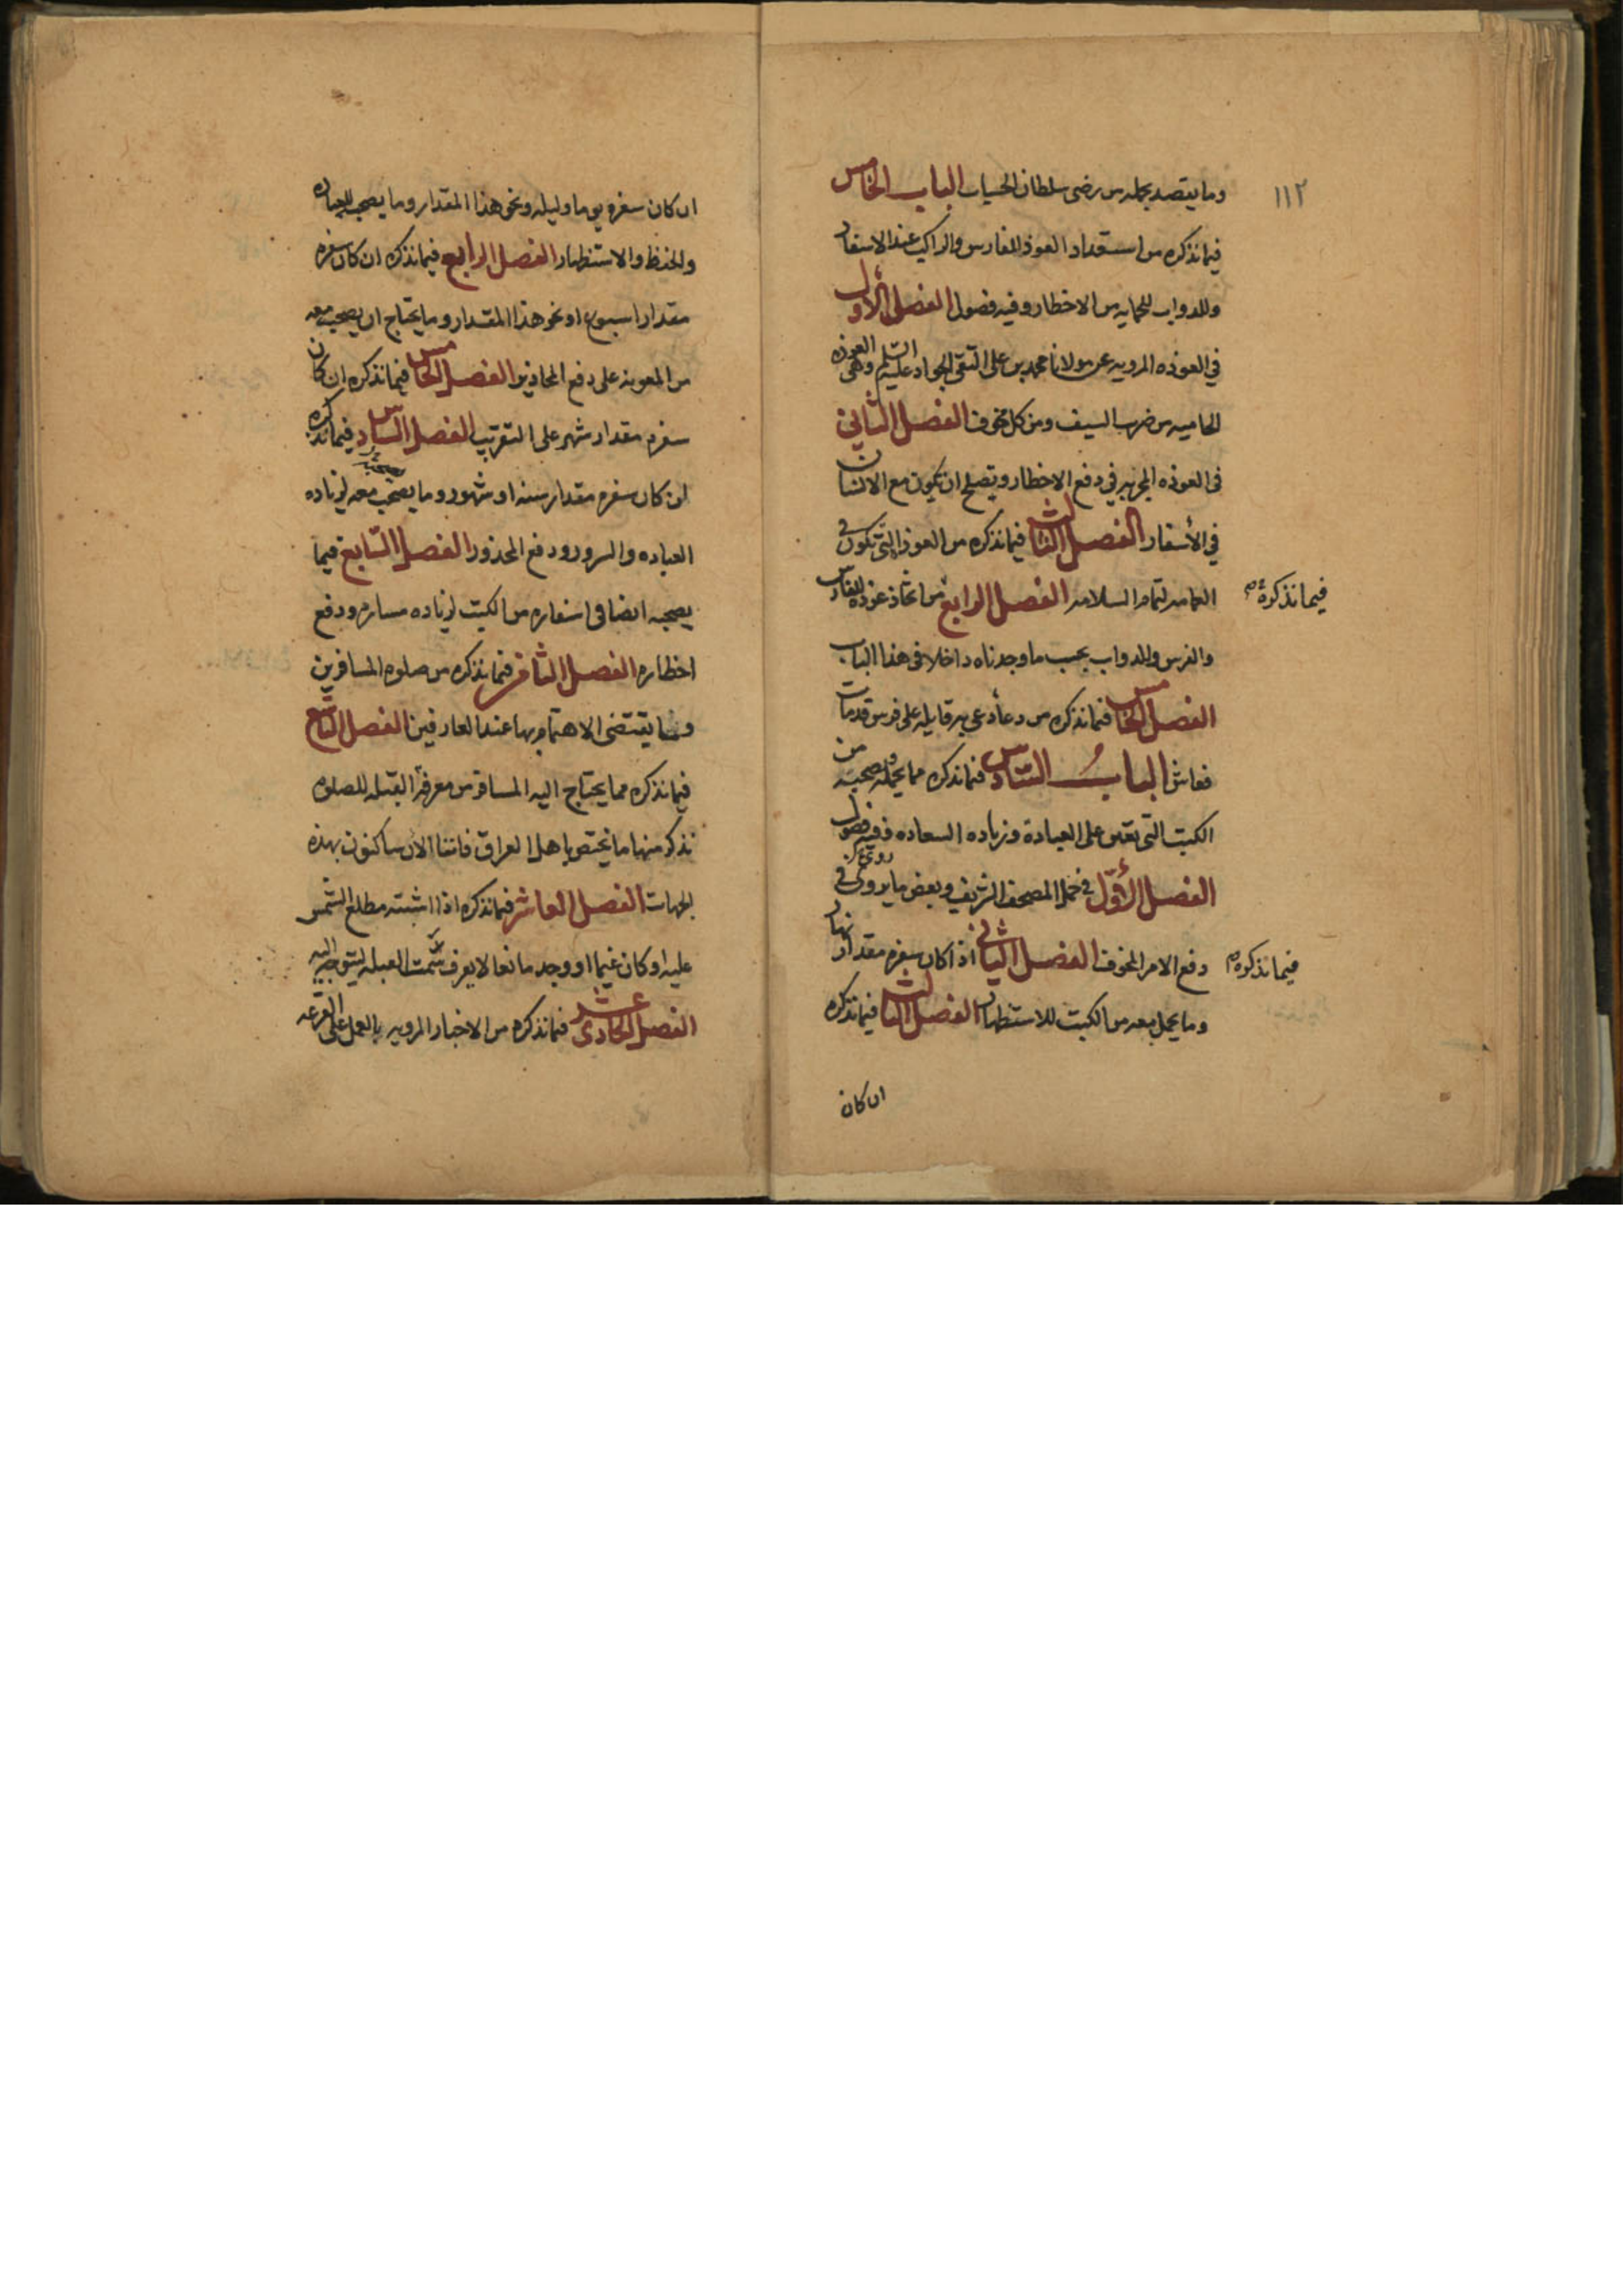 ١١٢
وما يقصد بحمله من رضى سلطان الحساب الباب الخامس
فيما نذكره من استعداد العوذ للفارس والراكب عند الاسفار
وللدواب للحمايه من الاخطار وفيه فصول الفصل الأول
في العوذه المرويه عن مولانا محمد بن علي التقي الجواد عليه السلم وهي العوذه
الحاميه من ضرب السيف ومن كل مخوف الفصل الثاني
في العوذه المجربه في دفع الاخطار ويصلح ان يكون مع الانسان
في الأسفار الفصل الثالث فيما نذكره من العوذ التي تكون في
العمامه لتمام السلامه الفصل الرابع من اتخاذ عوذه للفارس
فيما نذكره
والفرس وللدواب بحسب ما وجدناه داخلا في هذا الباب
الفصل الخامس فيما نذكره من دعاء دعى به قايله على فرس قد مات
فعاش الباب السادس فيما نذكره مما يحمله وصحبته من
الكتب التي تعين على العبادة وزياده السعاده وفيه فصول
الفصل الأول في حمل المصحف الشريف وبعض ما يروى في
روي
دفع الامر المخوف الفصل الثاني اذا كان سفره مقدار نهار
فيما نذكره
وما يحمل معه من الكتب للاستظهار الفصل الثالث فيما نذكره
ان كان
ان كان سفره يوما وليله ونحو هذا المقدار وما يصحبه للعباده
والحفظ والاستظهار الفصل الرابع فيما نذكره ان كان سفره
مقدار اسبوع او نحو هذا المقدار وما يحتاج ان يصحبه معه
من المعونه على دفع المحاذير الفصل الخامس فيما نذكره ان كان
سفره مقدار شهر على التقريب الفصل السادس فيما نذكره
لمن كان سفره مقدار سنه او شهور وما يصحب معه لزياده
العباده والسرور ودفع المحذور الفصل السابع فيما
يصحبه ايضا في اسفاره من الكتب لزياده مساره ودفع
اخطاره الفصل الثامن فيما نذكره من صلوه المسافرين
وما يقتضى الاهتمام بها عند العارفين الفصل التاسع
فيما نذكره مما يحتاج اليه المسافر من معرفة القبله للصلوه
نذكر منها ما يختص باهل العراق فاننا الان ساكنون بهذه
الجهات الفصل العاشر فيما نذكره اذا اشتبه مطلع الشمس
عليه او كان غيما او وجد مانعا لا يعرف سمت القبله ليتوجه اليه
الفصل الحادى عشر فيما نذكره من الاخبار المرويه بالعمل على القرعه